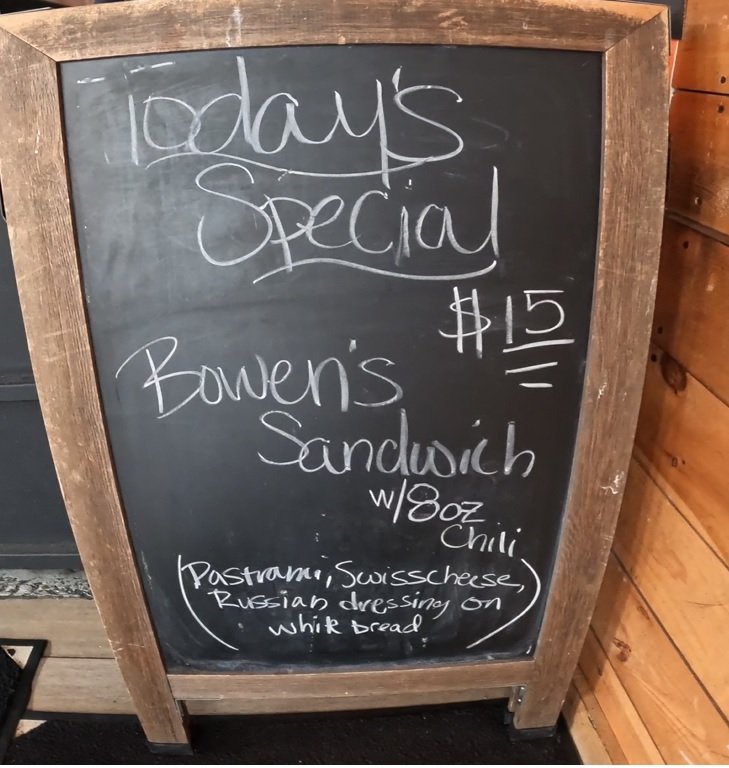 Today's
Special
$15
Bowen's
Sandwich
w/8oz
Chili
(Pastrami, Swisscheese,
Russian dressing on
white bread)